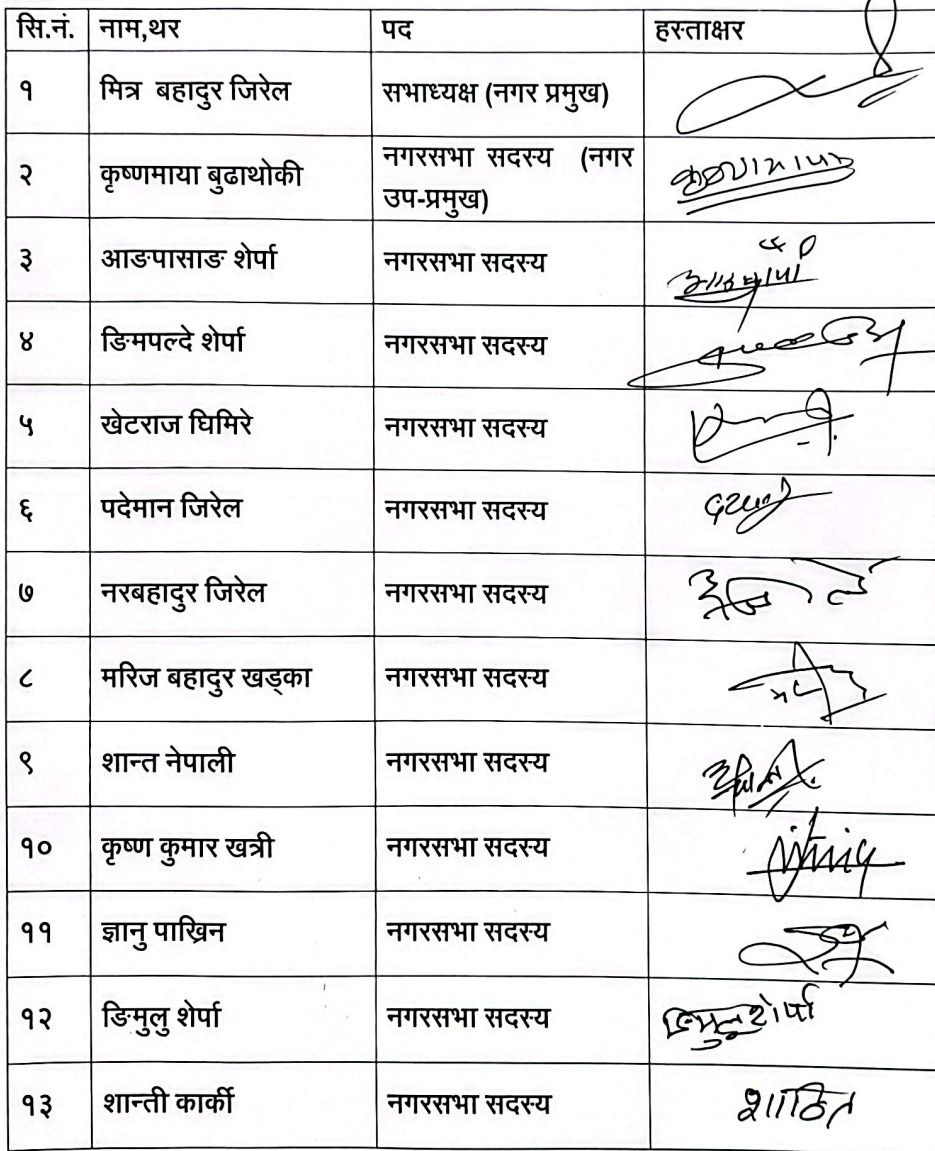 सि.नं. नाम,थर पद हस्ताक्षर
१ मित्र बहादुर जिरेल सभाध्यक्ष (नगर प्रमुख)
२ कृष्णमाया बुढाथोकी नगरसभा सदस्य (नगर
उप-प्रमुख)
३ आङपासाङ शेर्पा नगरसभा सदस्य
४ ङिमपल्दे शेर्पा नगरसभा सदस्य
५ खेटराज घिमिरे नगरसभा सदस्य
६ पदेमान जिरेल नगरसभा सदस्य
७ नरबहादुर जिरेल नगरसभा सदस्य
८ मरिज बहादुर खड्का नगरसभा सदस्य
९ शान्त नेपाली नगरसभा सदस्य
१० कृष्ण कुमार खत्री नगरसभा सदस्य
११ ज्ञानु पाख्रिन नगरसभा सदस्य
१२ ङिमुलु शेर्पा नगरसभा सदस्य ङिमुलु शेर्पा
१३ शान्ती कार्की नगरसभा सदस्य